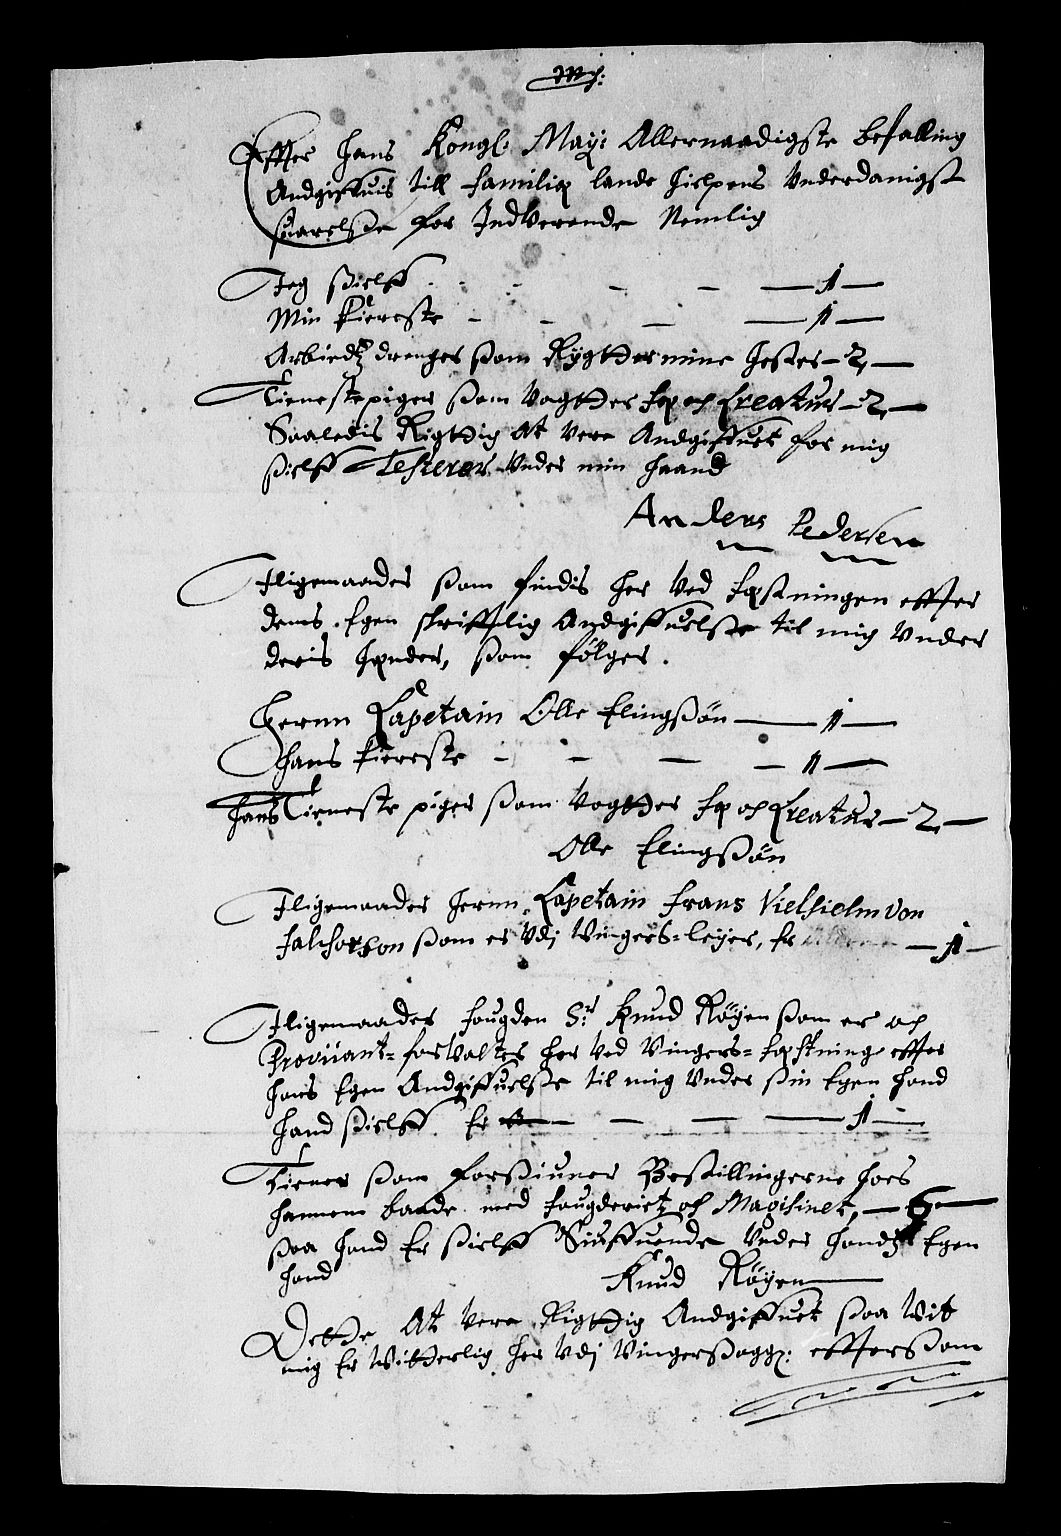 Effter hans Kongl: May: Allernaadigste befalling
Andgiffuis till familiæ lande hielpens Vnderdanigst
suarelsse for Indverende Nemlig
Jeg sielff 1
Min kiereste 1
Arbiedtz drenger som Rygtter mine hester 2
Tienestepiger som Vogtter fæ och Creatur 2
Saaledis Rigttig At vere Andgiffuet for mig
sielff Testerer Vnder min haand
Anders Pedersen
Jligemaader som findis her Ved fæstningen effter
deris Egen skrifftlig Andgiffuelsse til mig Vnder
deris hænder, som følger.
Hernn Capetain Olle Elingssøn 1
Hans kiereste 1
Hans Tieneste piger som Vogtter fæ och Creatur 2
Olle Elingssøn
Jligemaader Hernn Capetain frans Vielhielm von
som er Vdj Vingers-leyer, Er 1
Jligemaader fougden Sr Knud Røyen som er och
Proviiant-forvalter her Ved Vingers-fæstning effter
hans Egen Andgiffuelsse til mig Vnder sin Egen hand
hand sielff Er 1
Tiener som forssiuner Bestillingerne hoes
hannem baade med fougderiet och Magisinet, 6
saa hand Er sielff Vnder handtz Egen
hand
Knud Røyen
Dette At vere Rigttig Andgiffuet saa Vit
mig Er Witterlig her Vdj Vingerssogg: effterssom